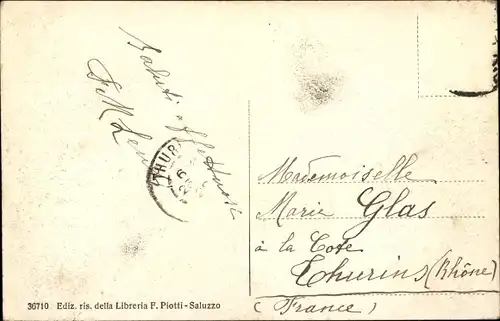 Saluti affettuosi
THUR
Mademoiselle
Marie Glas
à la Cote
Thurins (Rhône)
(France)
36710 Ediz. ris. della Libreria F. Piotti - Saluzzo